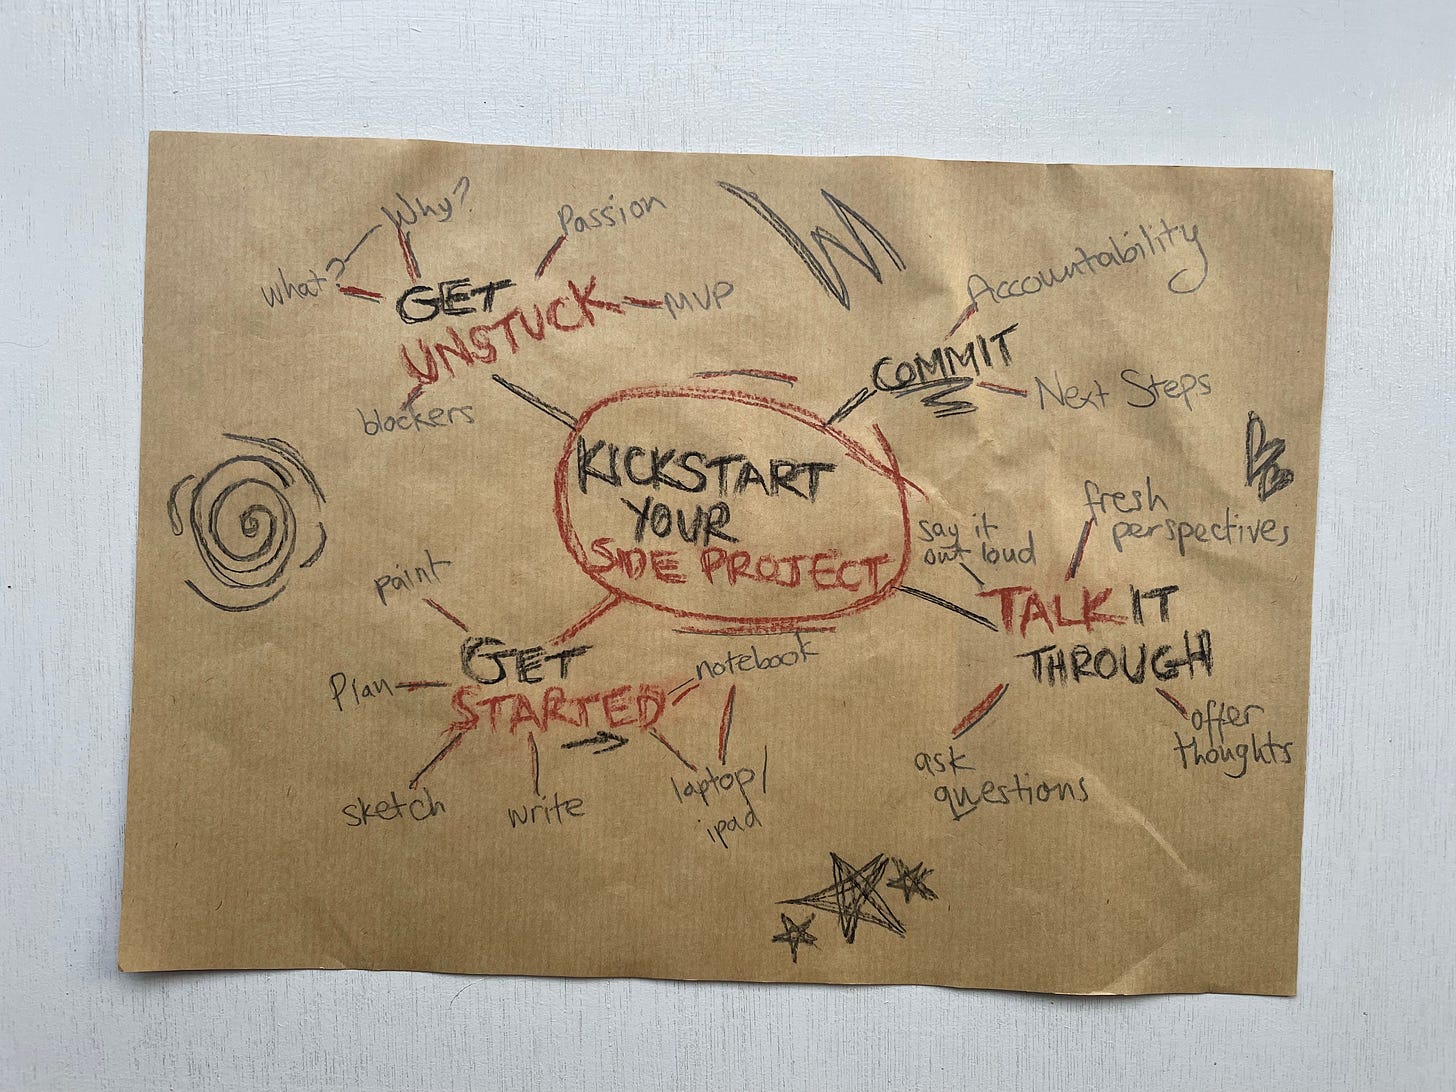 Why?
What?
GET
UNSTUCK
Passion
MVP
blockers
Accountability
COMMIT
Next Steps
KICKSTART
YOUR
SIDE PROJECT
say it
out loud
fresh
perspectives
TALK IT
THROUGH
ask
questions
offer
thoughts
paint
GET
STARTED
Plan
notebook
sketch
write
laptop/
ipad